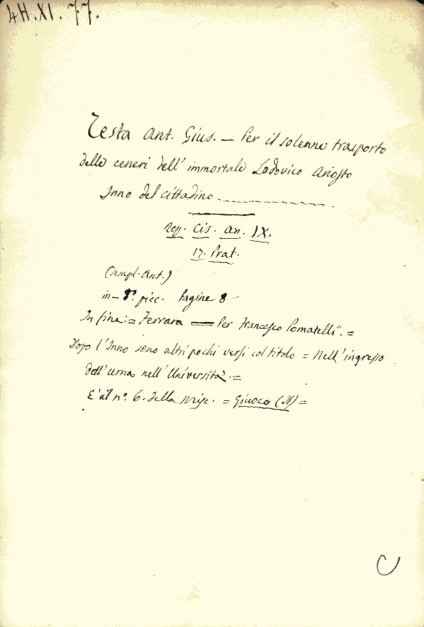 4H.XI. 77.
Testa Ant. Gius. — Per il solenne trasporto
delle ceneri dell'immortale Lodovico Ariosto
Inno del cittadino
Rep. Cis. an. IX.
17. Prat.
(Ampl. Ant.)
in-8º picc. Pagine 8
In fine: = Ferrara = Per Francesco Pomatelli. =
Dopo l'Inno sono altri pochi versi col titolo = Nell'ingresso
dell'urna nell'Università =
È al nº. 6. della Misc. = Giuoco (Il) =
C